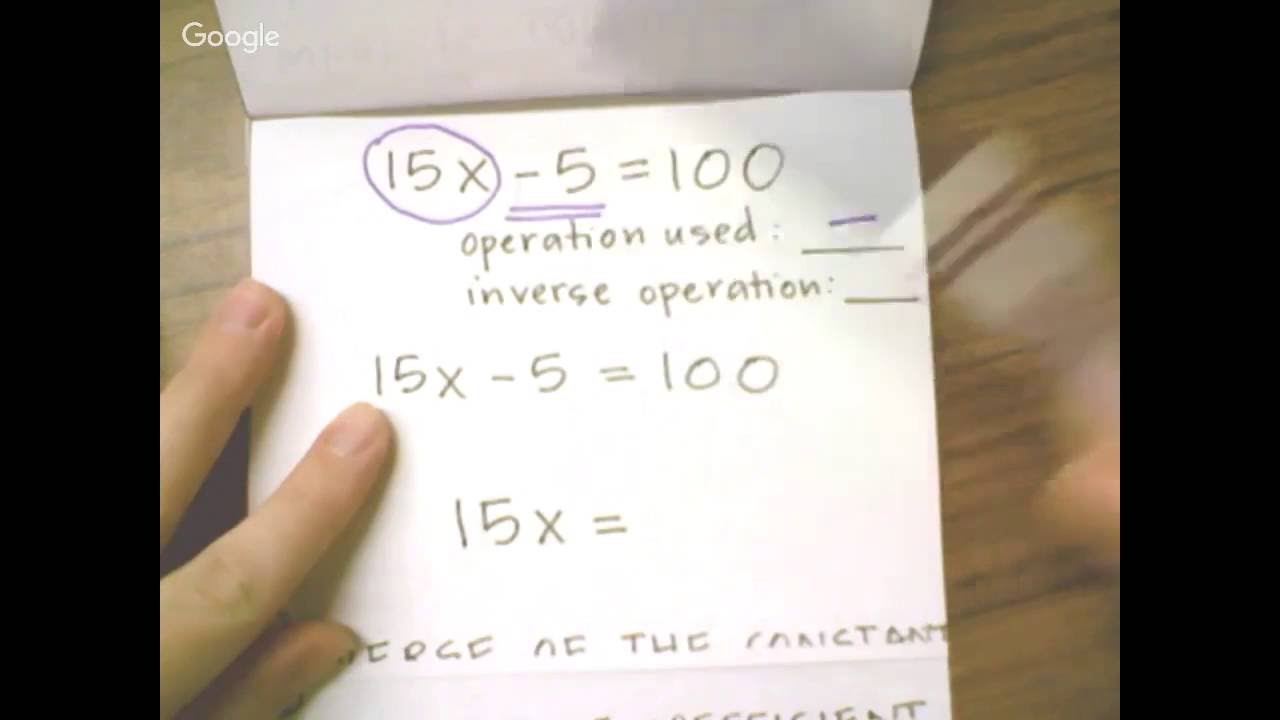 Google
15x - 5 = 100
operation used: −
inverse operation:
15x - 5 = 100
15x =
OF THE CONSTANT